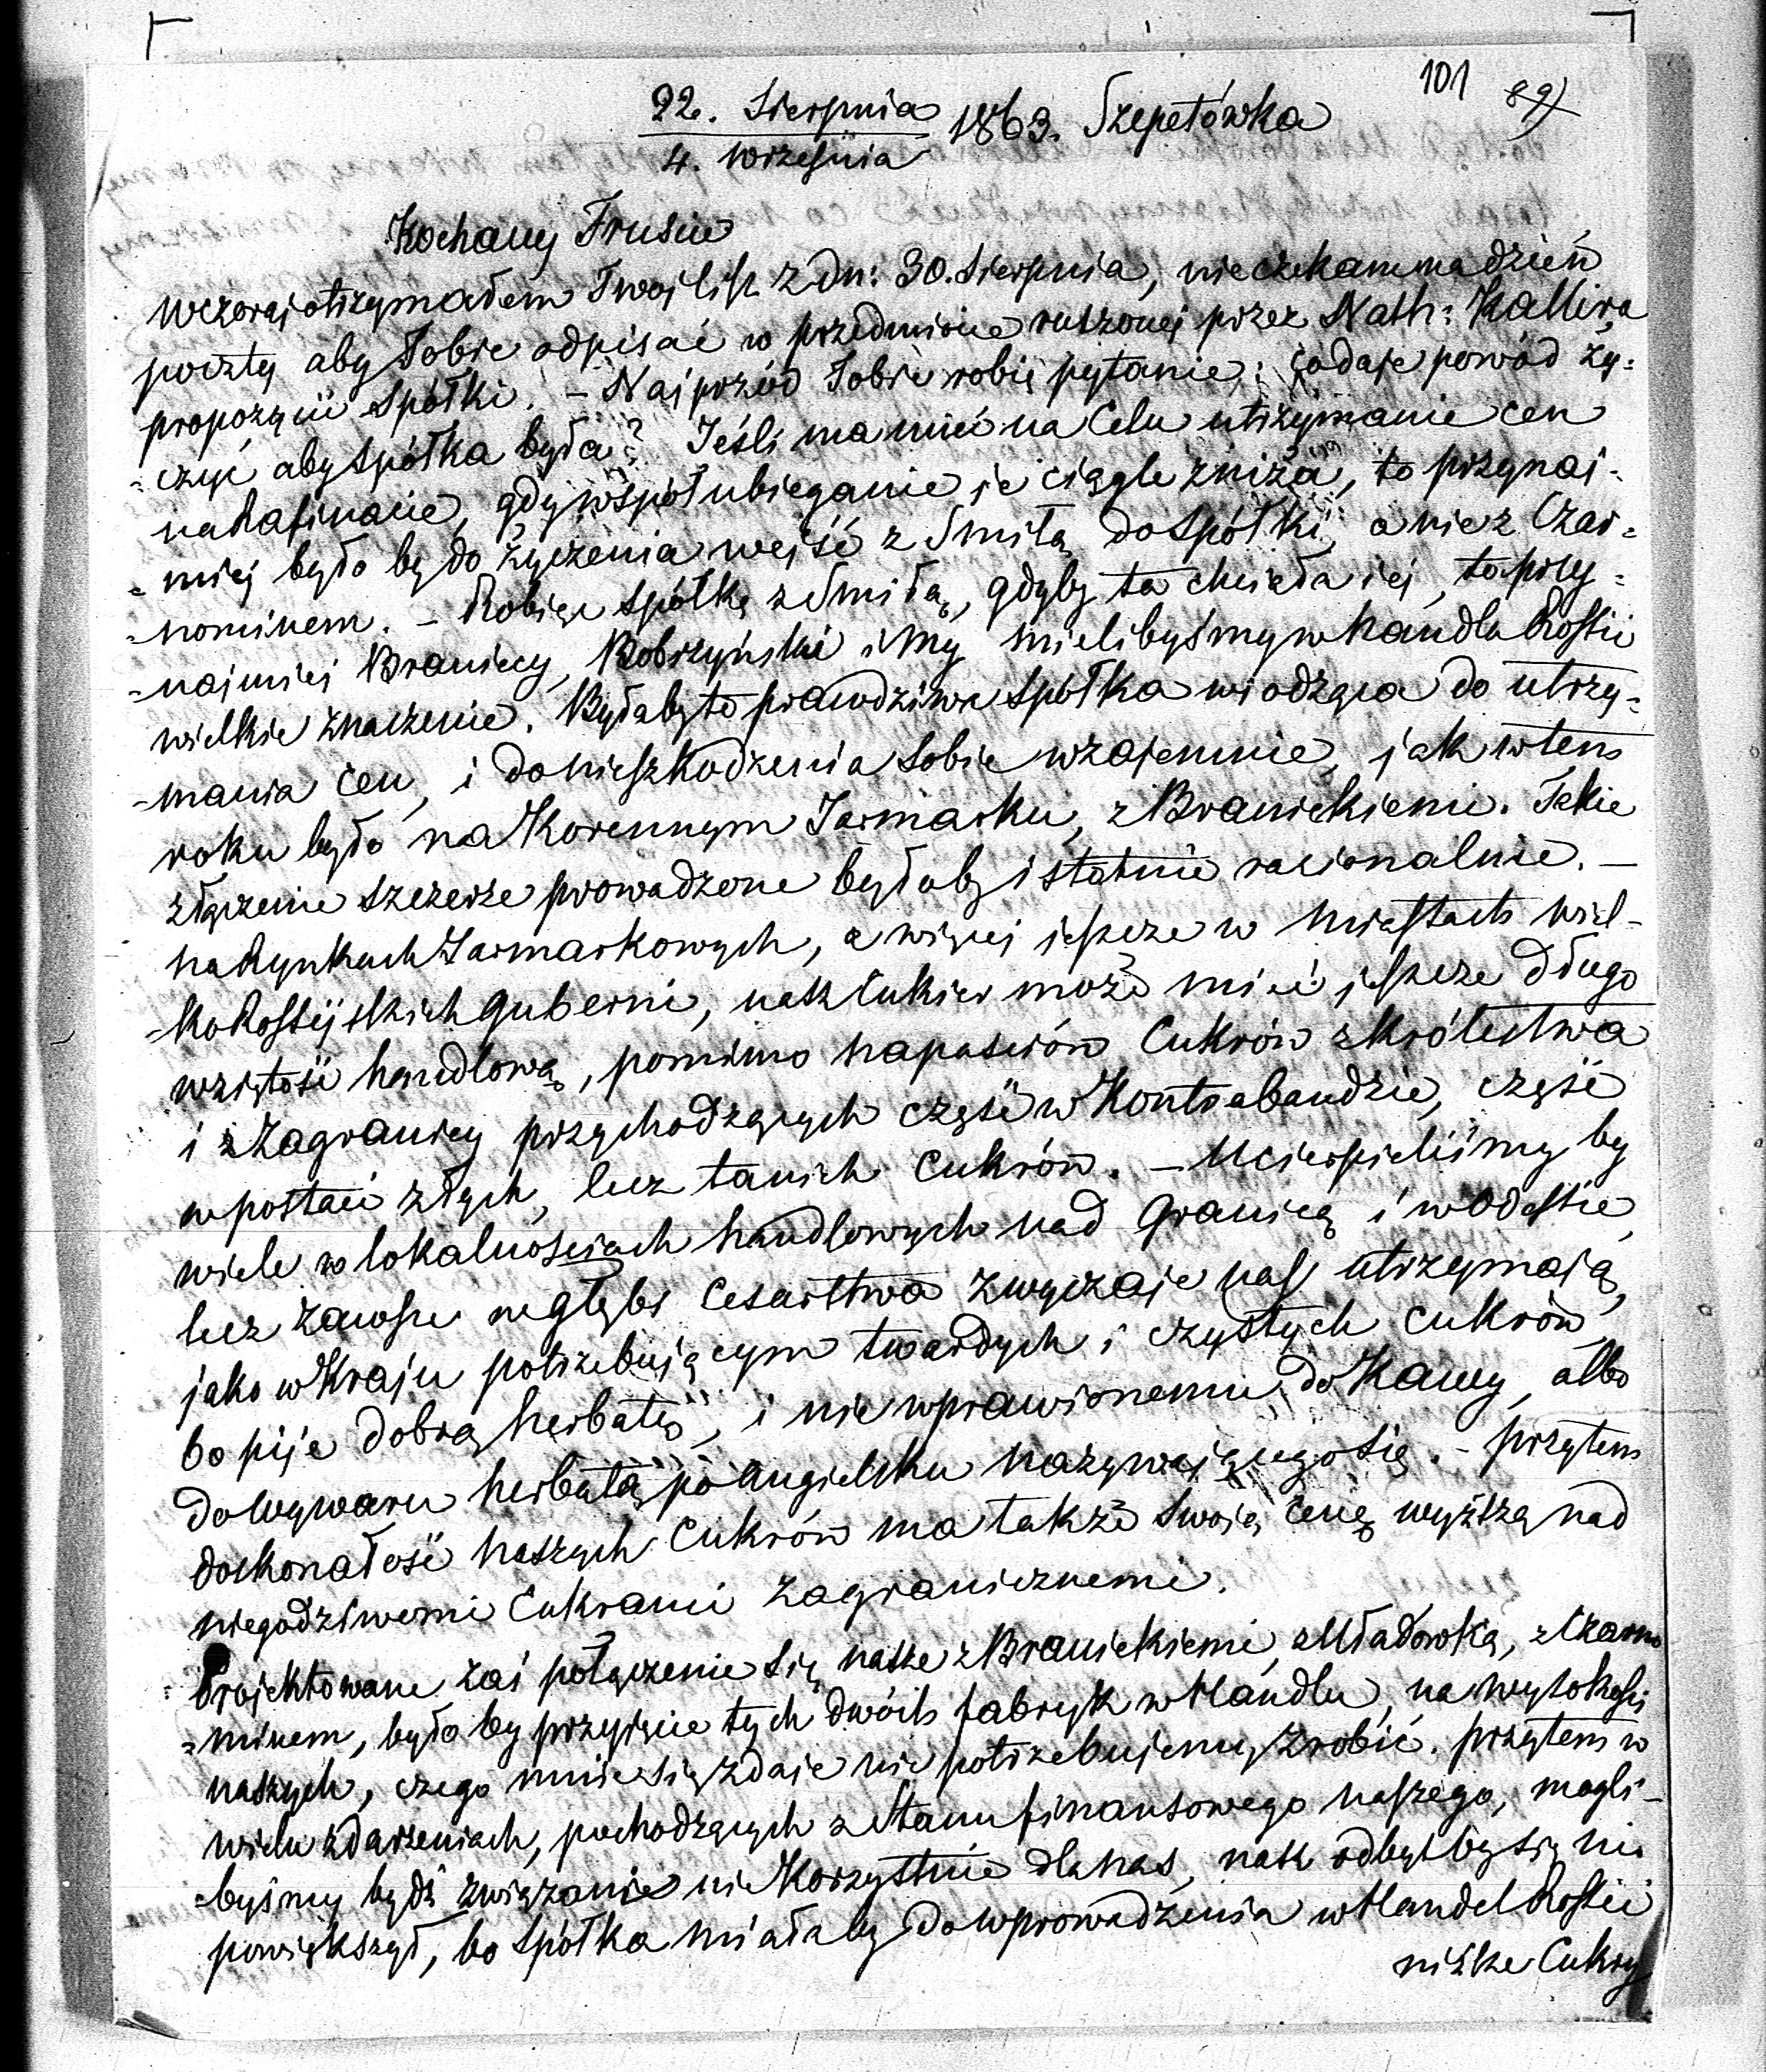 101 89)
22. Sierpnia 1863. Szepetówka
4. Września
Kochany Frusiu
Wczoraj otrzymałem Twoj list z dn: 30. Sierpnia, nieczekam na dzień
poczty aby Tobie odpisać w przedmiocie ruszonej przez Nath: Kallira
propozycii Spółki. – Najprzód Tobie robię pytanie: co daje powód ży=
=czyć aby Spółka była? Jeśli ma mieć na Celu utrzymanie cen
na Rafinacie, gdy współubieganie je ciągle zniża, to przynaj-
=mniej było by do życzenia wejść z Smiłą do Spółki, a nie z Czar=
=nominem. – Robiąc Spółkę z Smiłą, gdyby ta chciała iej, to przy=
=najmniej Braniccy, Bobrzyński i My mielibyśmy w handlu Rossii
wielkie znaczenie. Byłaby to prawdziwa Spółka wiodząca do utrzy=
-mania cen, i do nieszkodzenia Sobie wzajemnie, jak w tem
roku było na Korennym Jarmarku, z Branickiemi. Takie
złączenie szczerze prowadzone byłoby istotnie racionalnie. –
na Rynkach Jarmarkowych, a więcej jeszcze w Miastach Wiel-
-koRossijskich Guberni, nasz Cukier może mieć jeszcze długo
wziętość handlową, pomimo napaściów Cukrów z Królestwa
i z Zagranicy przychodzących część w Kontrabandzie, część
w postaci złych, lecz tanich Cukrów. – Ucierpieliśmy by
wiele w lokalnościach handlowych nad Granicą i w Odessie,
lecz zawsze w głębi Cesarstwa zwyczaje nas utrzymają,
jako w Kraju potrzebującym twardych i czystych Cukrów,
bo pije dobrą herbatę, i nie wprawionemu do Kawy, albo
do wywaru herbatą po angielsku nazywającego się. – przytem
doskonałość naszych Cukrów ma także Swoją cenę wyższą nad
niegodziwemi Cukrami zagranicznemi.
Projektowane zaś połączenie się nasze z Branickiemi, z Uładówką, z Czarno
=minem, było by przyjęcie tych dwóch fabryk w Handlu, na wysokości
naszych, czego mnie się zdaje nie potrzebujemy zrobić. przytem w
wielu zdarzeniach, pochodzących z Stanu finansowego naszego, mogli-
-byśmy być związanie nie Korzystnie dla nas, nasz odbyt by się nie
powiększył, bo Spółka miałaby do wprowadzenia w Handel Rossii
niższe Cukry